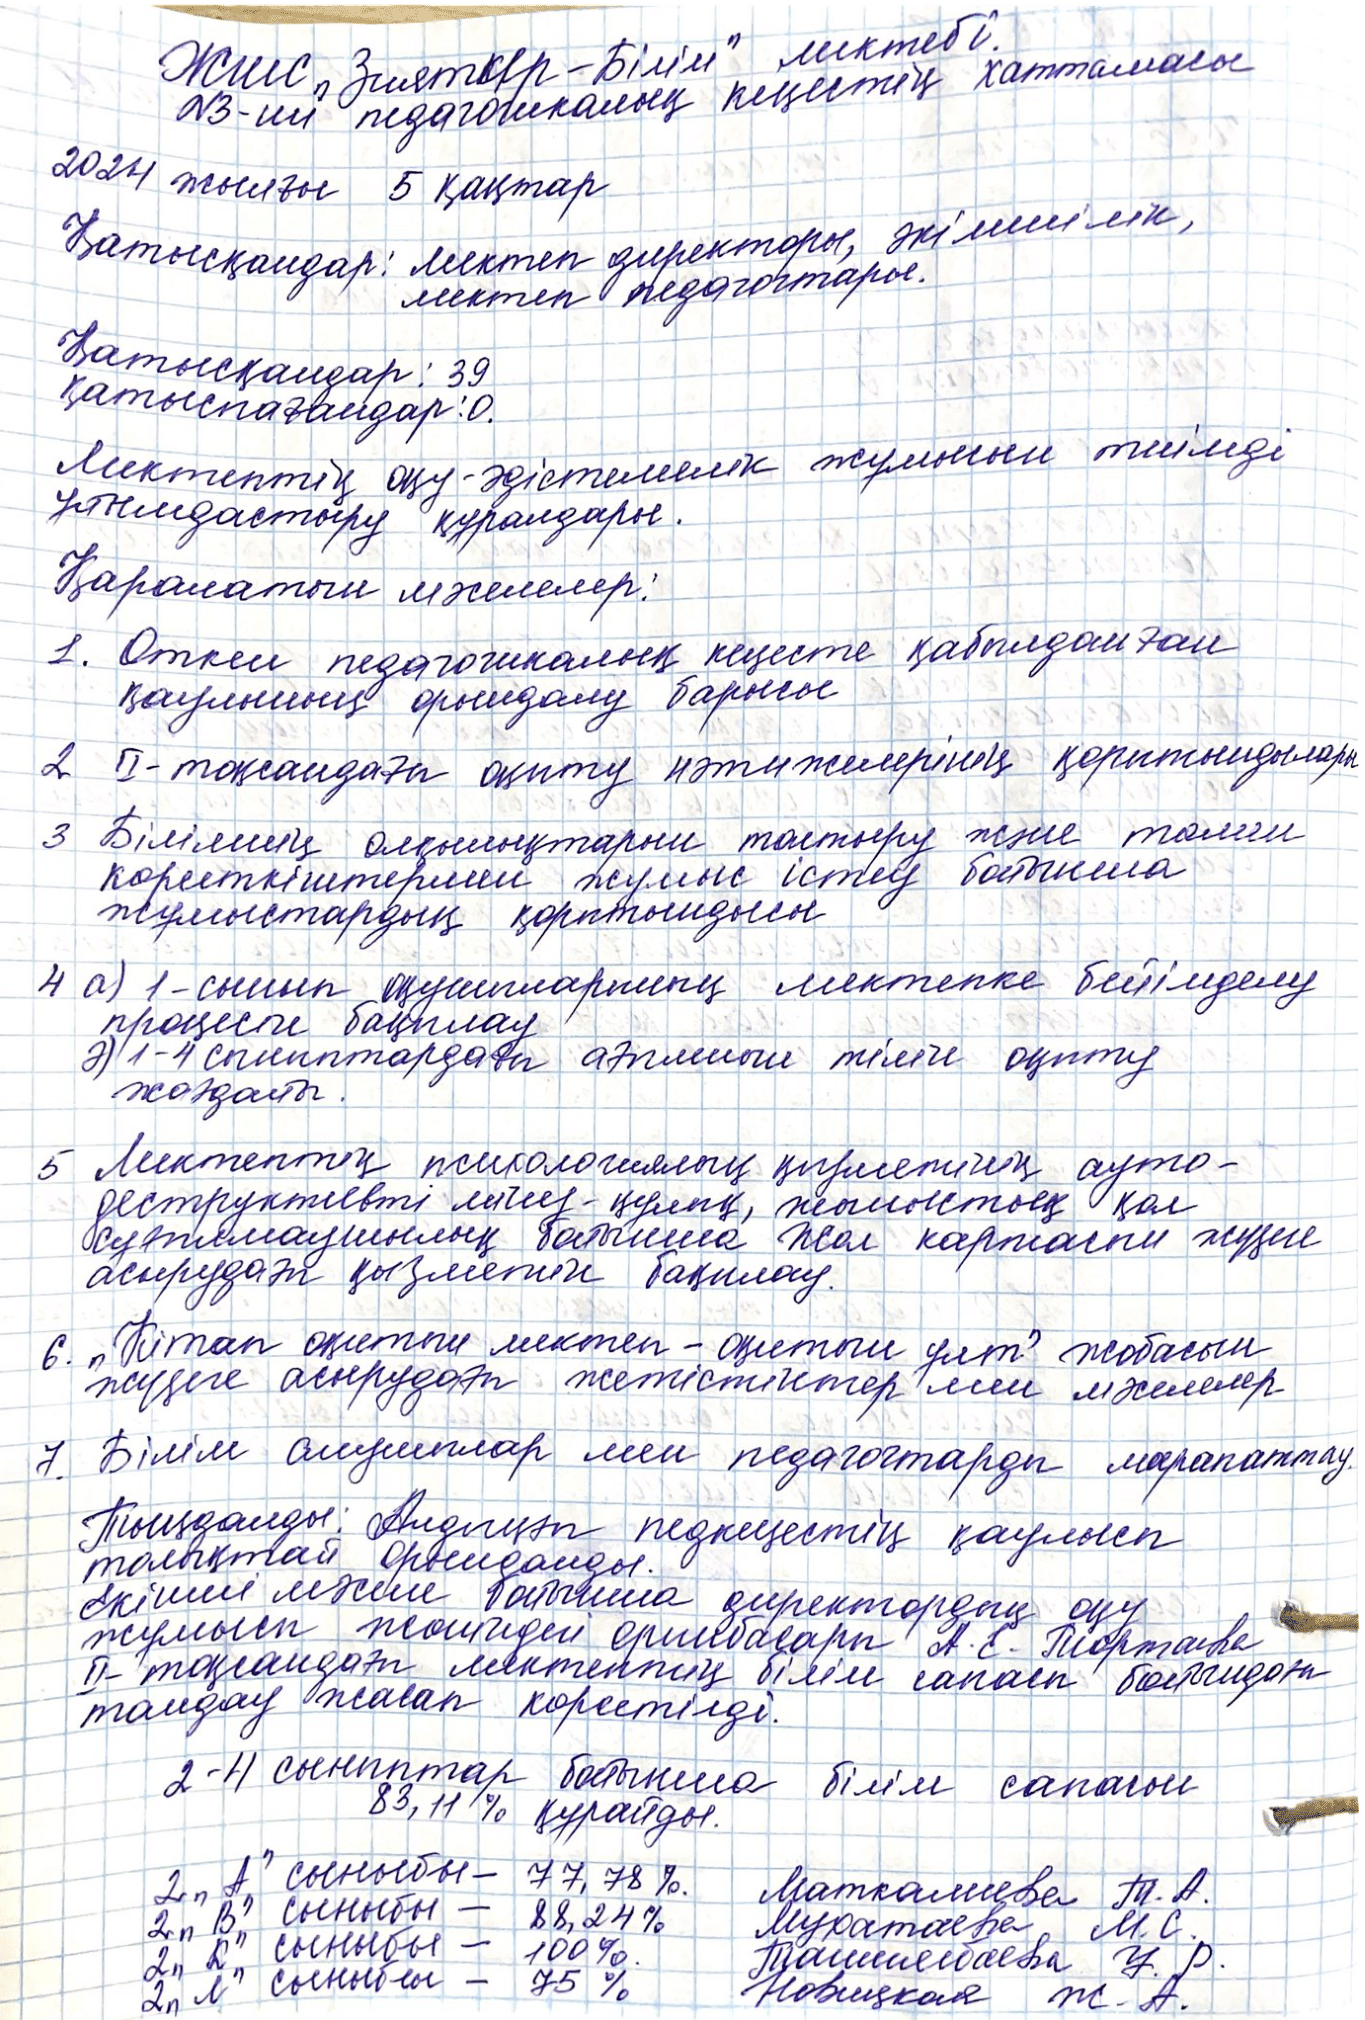 ЖШС „Зияткер-Білім" мектебі.
№3-ші педагогикалық кеңестің хаттамасы
2024 жылғы 5 қаңтар
Қатысқандар: мектеп директоры, әкімшілік,
мектеп педагогтары.
Қатысқандар: 39
Қатыспағандар: 0.
Мектептің оқу-әдістемелік жұмысын тиімді
ұйымдастыру құралдары.
Қаралатын мәселелер:
1. Өткен педагогикалық кеңесте қабылданған
қаулының орындалу барысы
2 II-тоқсандағы оқыту нәтижелерінің қорытындылары
3 Білімнің олқылықтарын толтыру және төмен
көрсеткіштермен жұмыс істеу бойынша
жұмыстардың қорытындысы
4 а) 1-сынып оқушыларының мектепке бейімделу
процесін бақылау
ә) 1-4 сыныптардағы ағылшын тілін оқыту
жағдайы.
5 Мектептің психологиялық қызметінің ауто-
деструктивті мінез-құлық, жыныстық қол
сұғылмаушылық бойынша Жол картасын жүзеге
асырудағы қызметін бақылау.
6. „Кітап оқитын мектеп - оқитын ұлт" жобасын
жүзеге асырудағы жетістіктер мен мәселелер
7. Білім алушылар мен педагогтарды марапаттау.
Тыңдалды: Алдыңғы педкеңестің қаулысы
толықтай орындалды.
Екінші мәселе бойынша директордың оқу
жұмысы жөніндегі орынбасары А.С. Тортаева
II-тоқсандағы мектептің білім сапасы бойындағы
талдау жасап көрсетілді.
2-4 сыныптар бойынша білім сапасын
83,11% құрайды.
2„А" сыныбы - 77,78%. Маткалиева Т.А.
2„В" сыныбы - 88,24% Муратаева М.С.
2„К" сыныбы - 100%. Ташимбаева У.Р.
2„М" сыныбы - 75% Новицкая Ж.А.